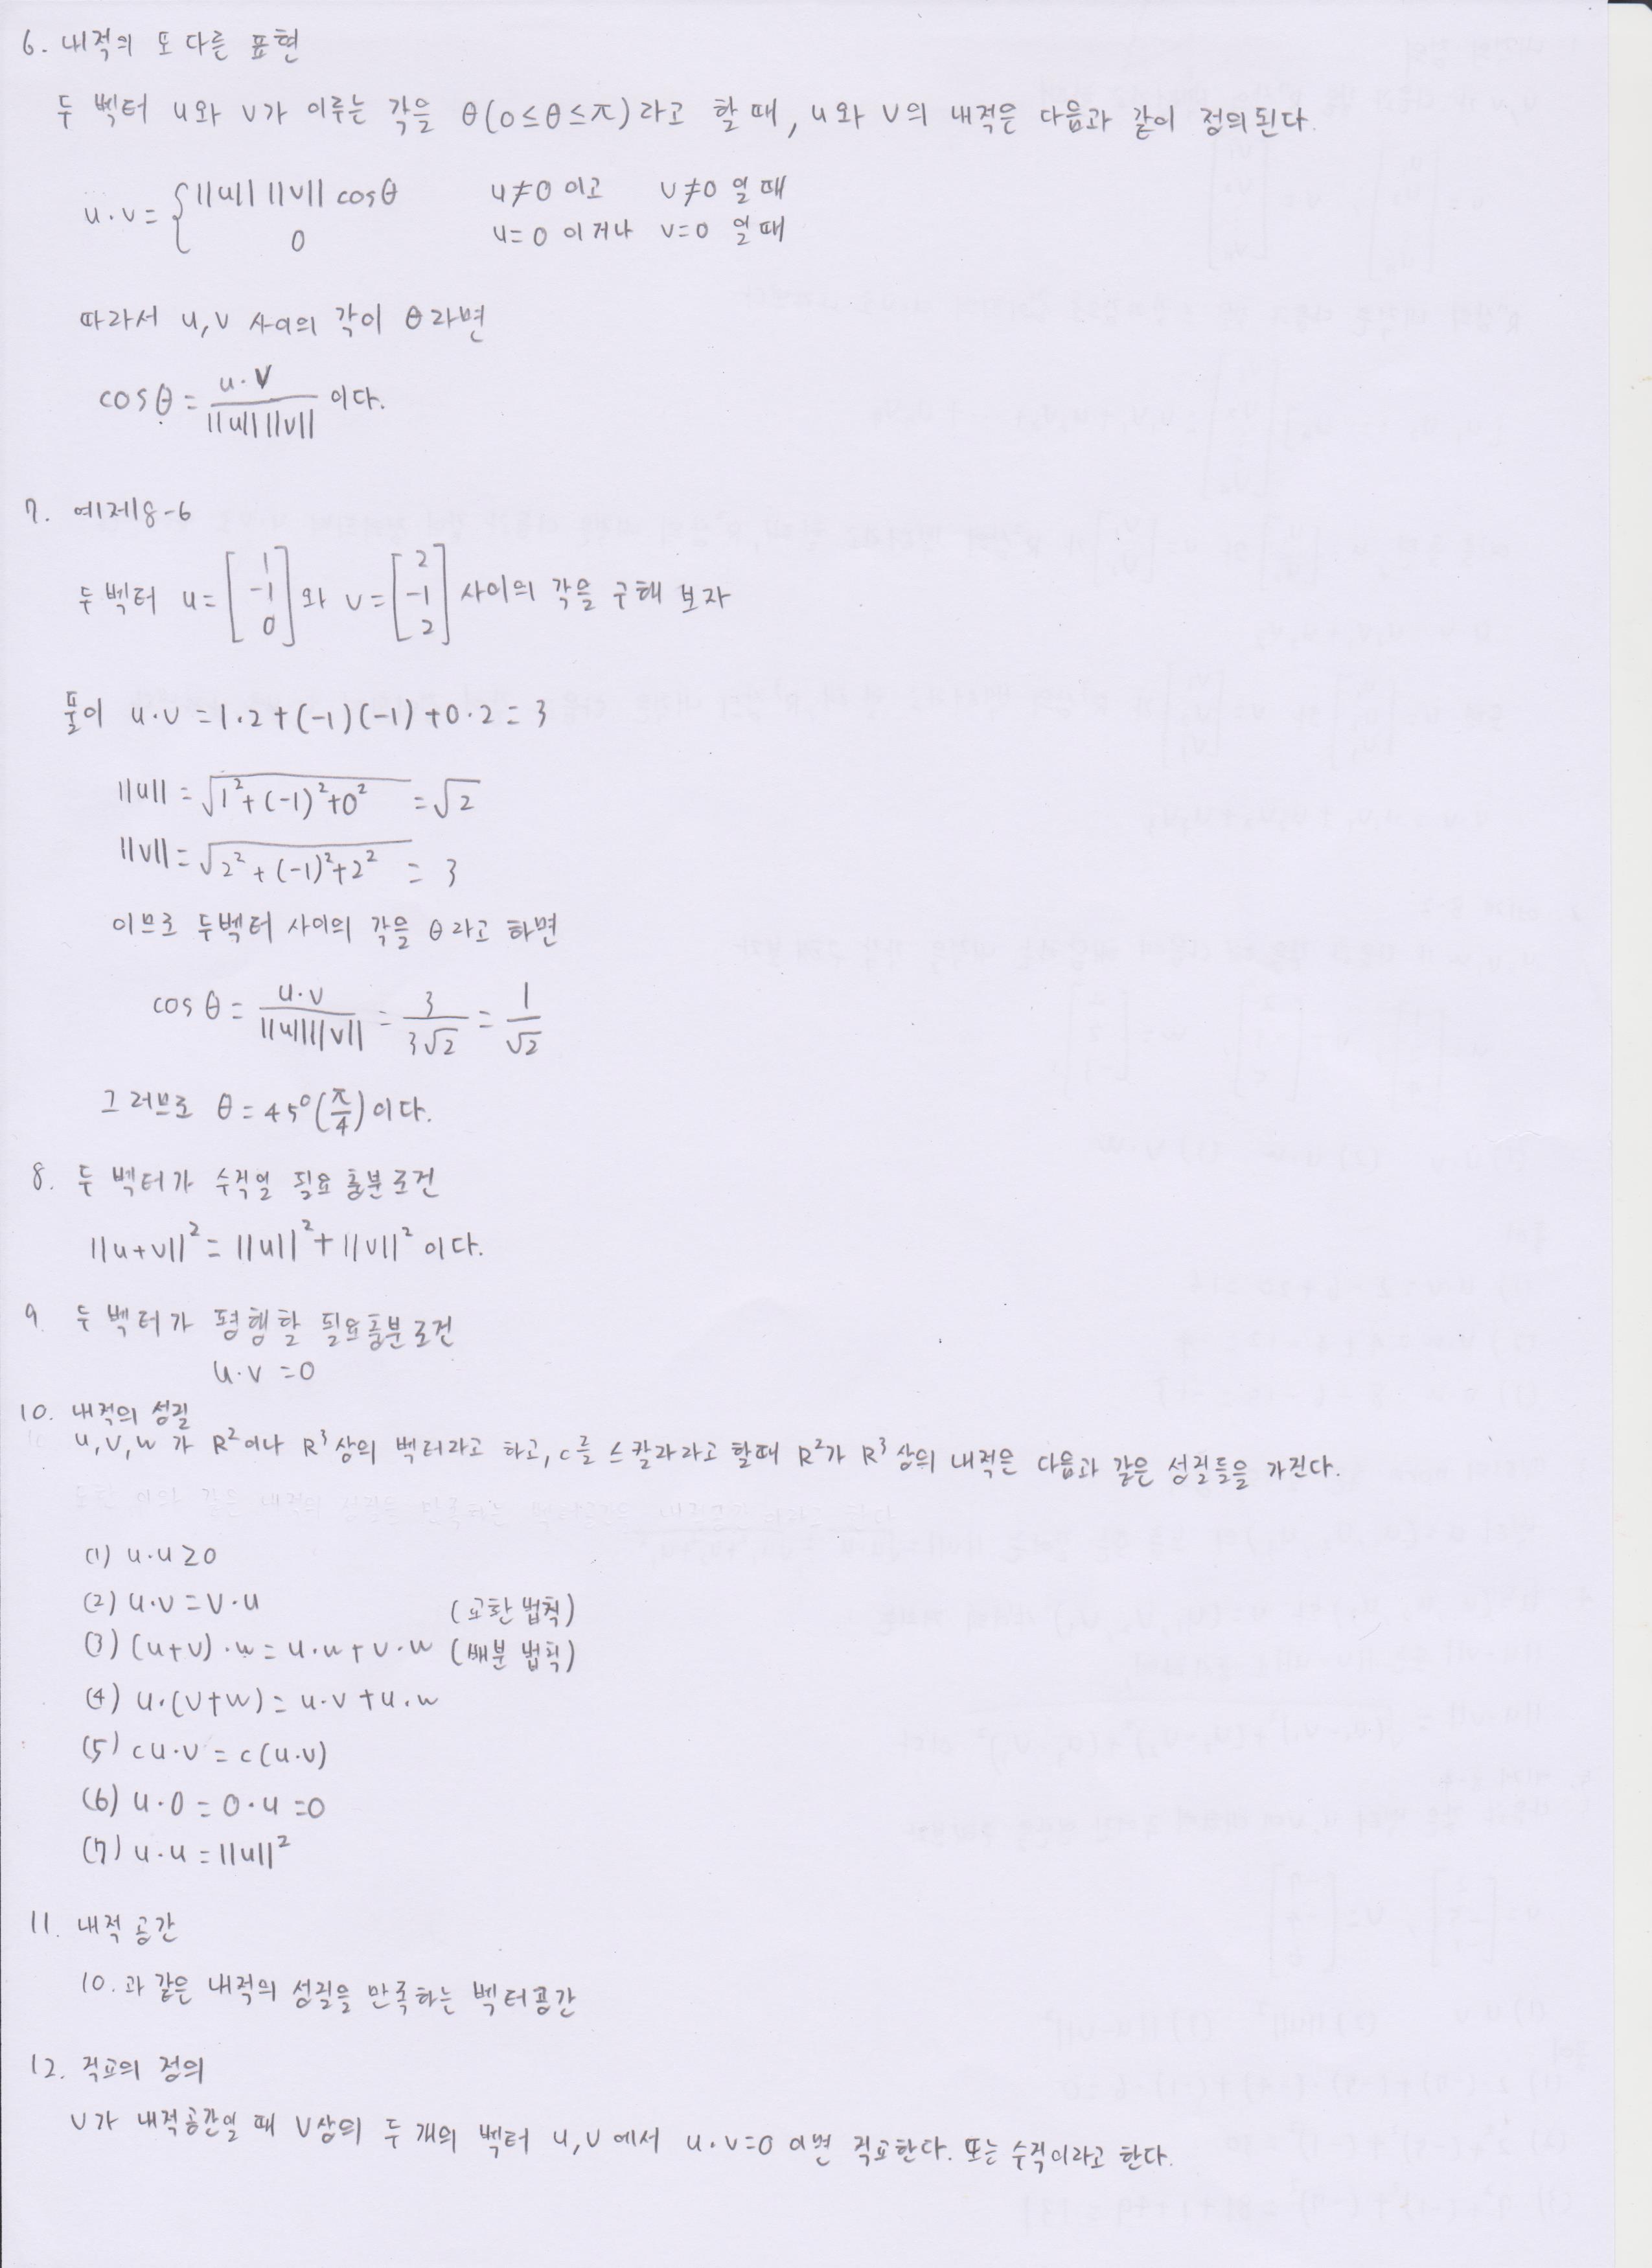 6. 내적의 또 다른 표현
두 벡터 u와 v가 이루는 각을 θ(0≤θ≤π)라고 할 때, u와 v의 내적은 다음과 같이 정의된다.
u·v = { ||u|| ||v|| cosθ u≠0 이고 v≠0 일 때
0 u=0 이거나 v=0 일 때
따라서 u,v 사이의 각이 θ라면
cosθ = u·v / ||u|| ||v|| 이다.
7. 예제8-6
두 벡터 u = [1 -1 0] 와 v = [2 -1 2] 사이의 각을 구해 보자
풀이 u·v = 1·2+(-1)(-1)+0·2 = 3
||u|| = √(1²+(-1)²+0²) = √2
||v|| = √(2²+(-1)²+2²) = 3
이므로 두벡터 사이의 각을 θ라고 하면
cosθ = u·v / ||u||||v|| = 3 / 3√2 = 1 / √2
그러므로 θ = 45°(π/4)이다.
8. 두 벡터가 수직일 필요충분조건
||u+v||² = ||u||² + ||v||² 이다.
9. 두 벡터가 평행할 필요충분조건
u·v = 0
10. 내적의 성질
u,v,w가 R²이나 R³상의 벡터라고 하고, c를 스칼라라고 할때 R²가 R³상의 내적은 다음과 같은 성질들을 가진다.
(1) u·u≥0
(2) u·v = v·u (교환 법칙)
(3) (u+v)·w = u·w + v·w (배분 법칙)
(4) u·(v+w) = u·v + u·w
(5) cu·v = c(u·v)
(6) u·0 = 0·u = 0
(7) u·u = ||u||²
11. 내적 공간
10.과 같은 내적의 성질을 만족하는 벡터공간
12. 직교의 정의
V가 내적공간일 때 V상의 두 개의 벡터 u,v에서 u·v=0 이면 직교한다. 또는 수직이라고 한다.